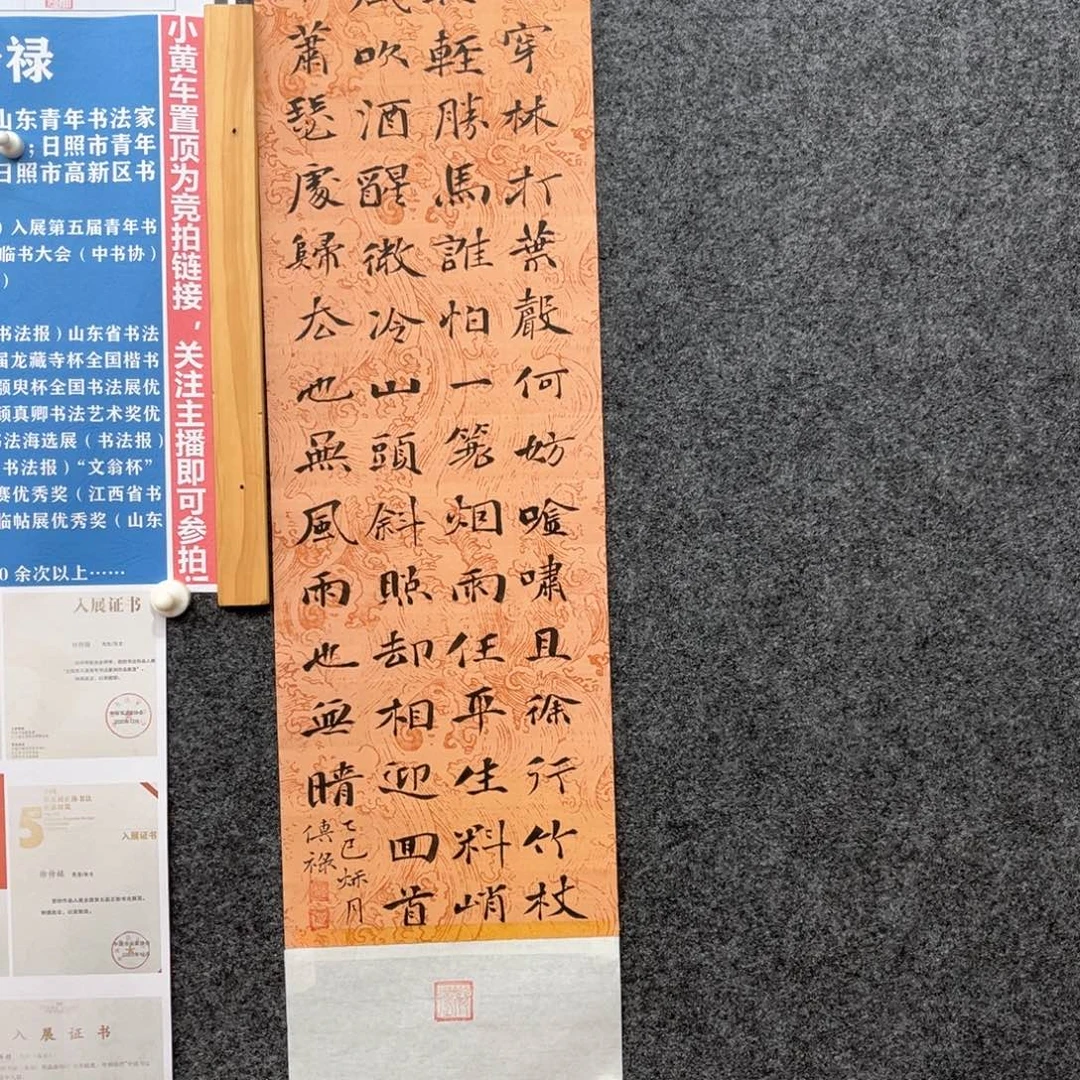 穿林打葉聲何妨唫嘯且徐行竹杖
輕勝馬誰怕一蓑烟雨任平生料峭
風吹酒醒微冷山頭斜照却相迎回首
蕭瑟處歸去也無風雨也無晴
乙巳秋月
傳祿
禄
山东青年书法家
;日照市青年
日照市高新区书
）入展第五届青年书
临书大会（中书协）
）
书法报）山东省书法
届龙藏寺杯全国楷书
颜臾杯全国书法展优
颜真卿书法艺术奖优
书法海选展（书法报）
书法报）“文翁杯”
赛优秀奖（江西省书
临帖展优秀奖（山东
0 余次以上……
小黄车置顶为竞拍链接，关注主播即可参拍
入展证书
5
入展证书
入展证书